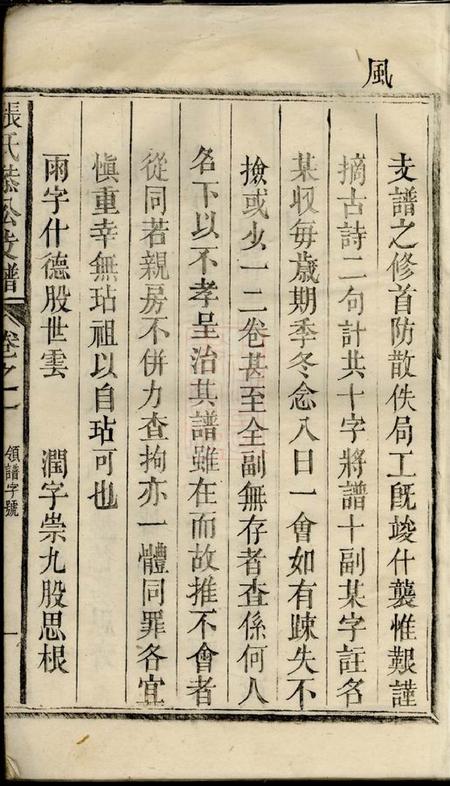 風
支譜之修首防散佚局工旣竣什襲惟艱謹
摘古詩二句計共十字將譜十副某字註名
某收每歲期季冬念八日一會如有踈失不
撿或少一二卷甚至全副無存者查係何人
名下以不孝呈治其譜雖在而故推不會者
從同若親房不併力查拘亦一體同罪各宜
慎重幸無玷祖以自玷可也
雨字什德股世雲　潤字崇九股思根
張氏恭公支譜　卷之一　領譜字號　一